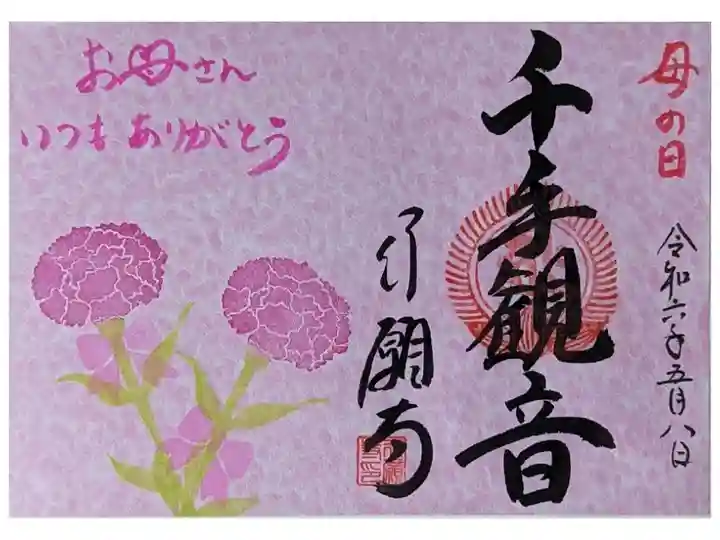 母の日
令和六年五月八日
千手観音
行願寺
お母さん
いつもありがとう